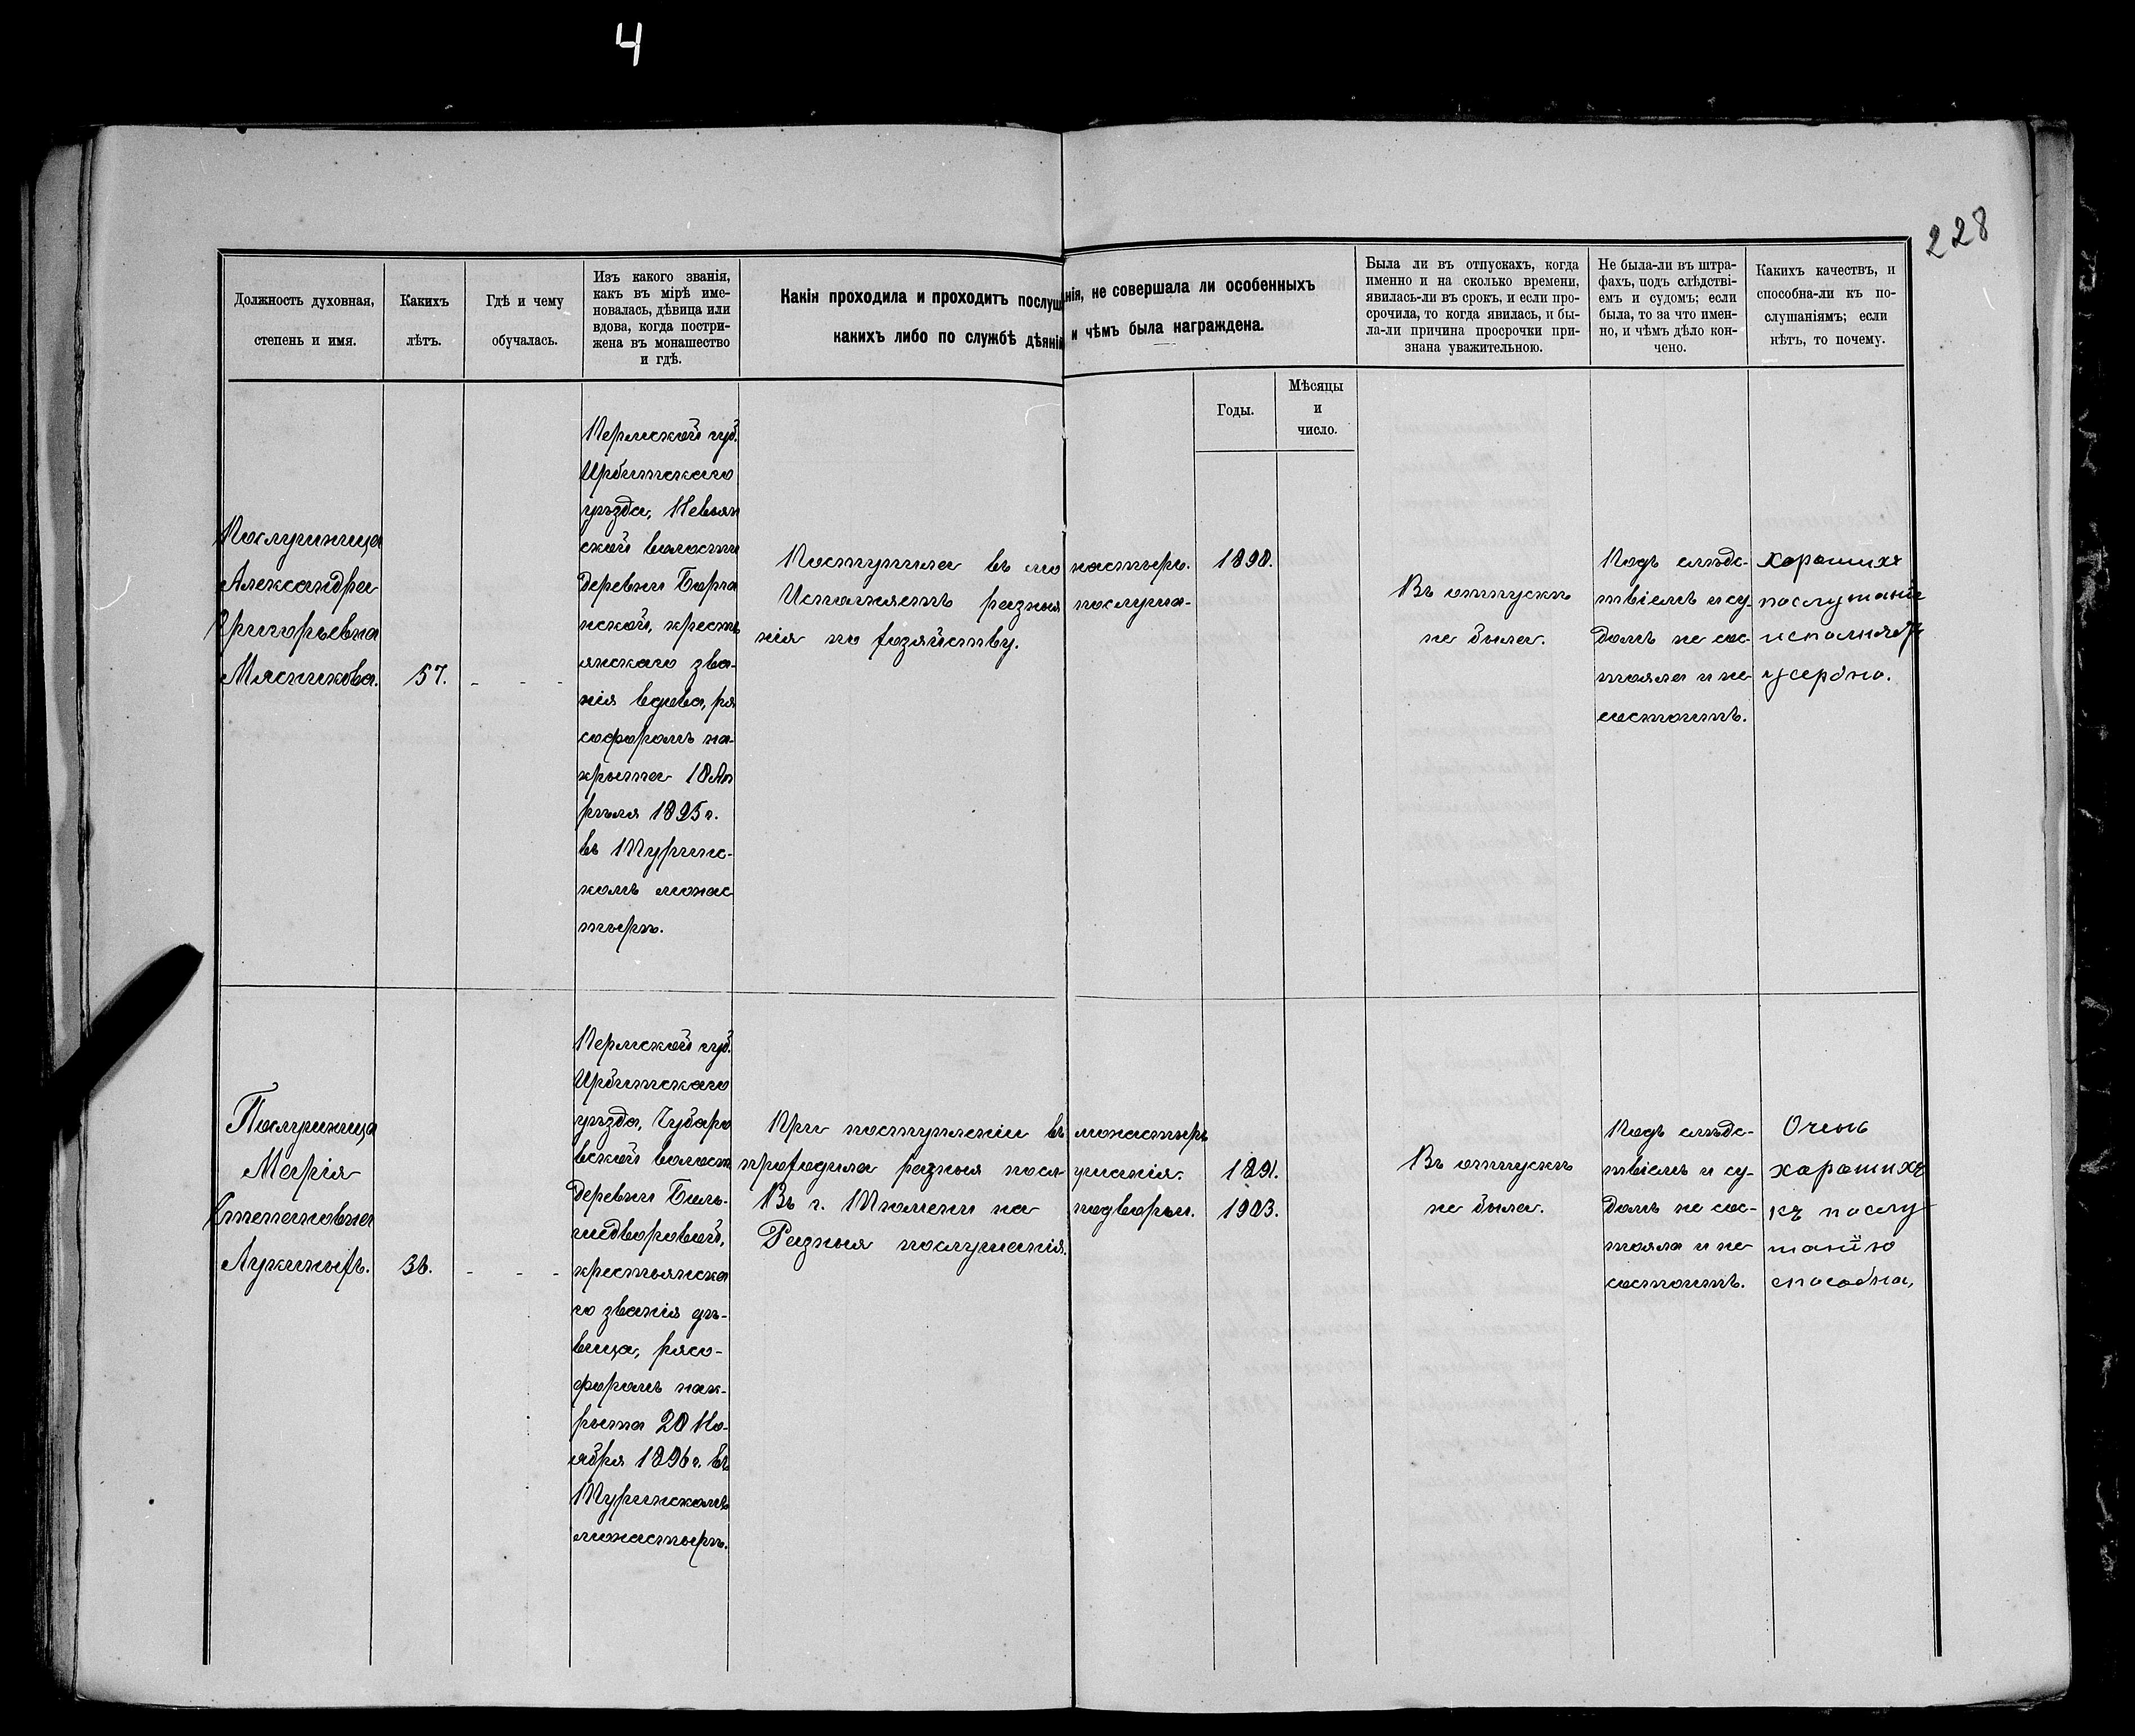 4
228
Должность духовная,
степень и имя.
Какихъ
лѣтъ.
Гдѣ и чему
обучалась.
Изъ какого званія,
какъ въ мірѣ име-
новалась, дѣвица или
вдова, когда постри-
жена въ монашество
и гдѣ.
Какія проходила и проходитъ послушанія, не совершала ли особенныхъ
какихъ либо по службѣ дѣяній и чѣмъ была награждена.
Годы.
Мѣсяцы
и
число.
Была ли въ отпускахъ, когда
именно и на сколько времени,
явилась-ли въ срокъ, и если про-
срочила, то когда явилась, и бы-
ла-ли причина просрочки при-
знана уважительною.
Не была-ли въ штра-
фахъ, подъ слѣдстві-
емъ и судомъ; если
была, то за что имен-
но, и чѣмъ дѣло кон-
чено.
Какихъ качествъ, и
способна-ли къ по-
слушаніямъ; если
нѣтъ, то почему.
Послушница
Александра
Григорьевна
Мясникова.
57.
- - -
Пермской губ.
Ирбитскаго
уѣзда, Невьян
ской волости
деревни Боро
нской, кресть
янскаго зва-
нія вдова, ря
софоромъ на-
крыта 18 Ап
рѣля 1895 г.
въ Туринс-
комъ монас
тырѣ.
Поступила въ монастырь.
Исполняетъ разныя послуша-
нія по хозяйству.
1890.
Въ отпускѣ
не была.
Подъ слѣдс-
твіемъ и су-
домъ не сос-
тояла и не
состоитъ.
хорошихъ
послушаніе
исполняетъ
усердно.
Послушница
Марія
Степановна
Лукиныхъ.
36.
- - -
Пермской губ.
Ирбитскаго
уѣзда, Чубаро
вской волости
деревни
крестьянска
го званія дѣ-
вица, рясо-
форомъ нак-
рыта 20 Но-
ября 1896 г. въ
Туринскомъ
монастырѣ.
При поступленіи въ монастырь
проходила разныя послушанія.
Въ г. Тюмени на подворьи.
Разныя послушанія.
1891.
1903.
Въ отпускѣ
не была.
Подъ слѣдс-
твіемъ и су-
домъ не сос-
тояла и не
состоитъ.
Очень
хорошихъ
къ послу
шанію
способна,